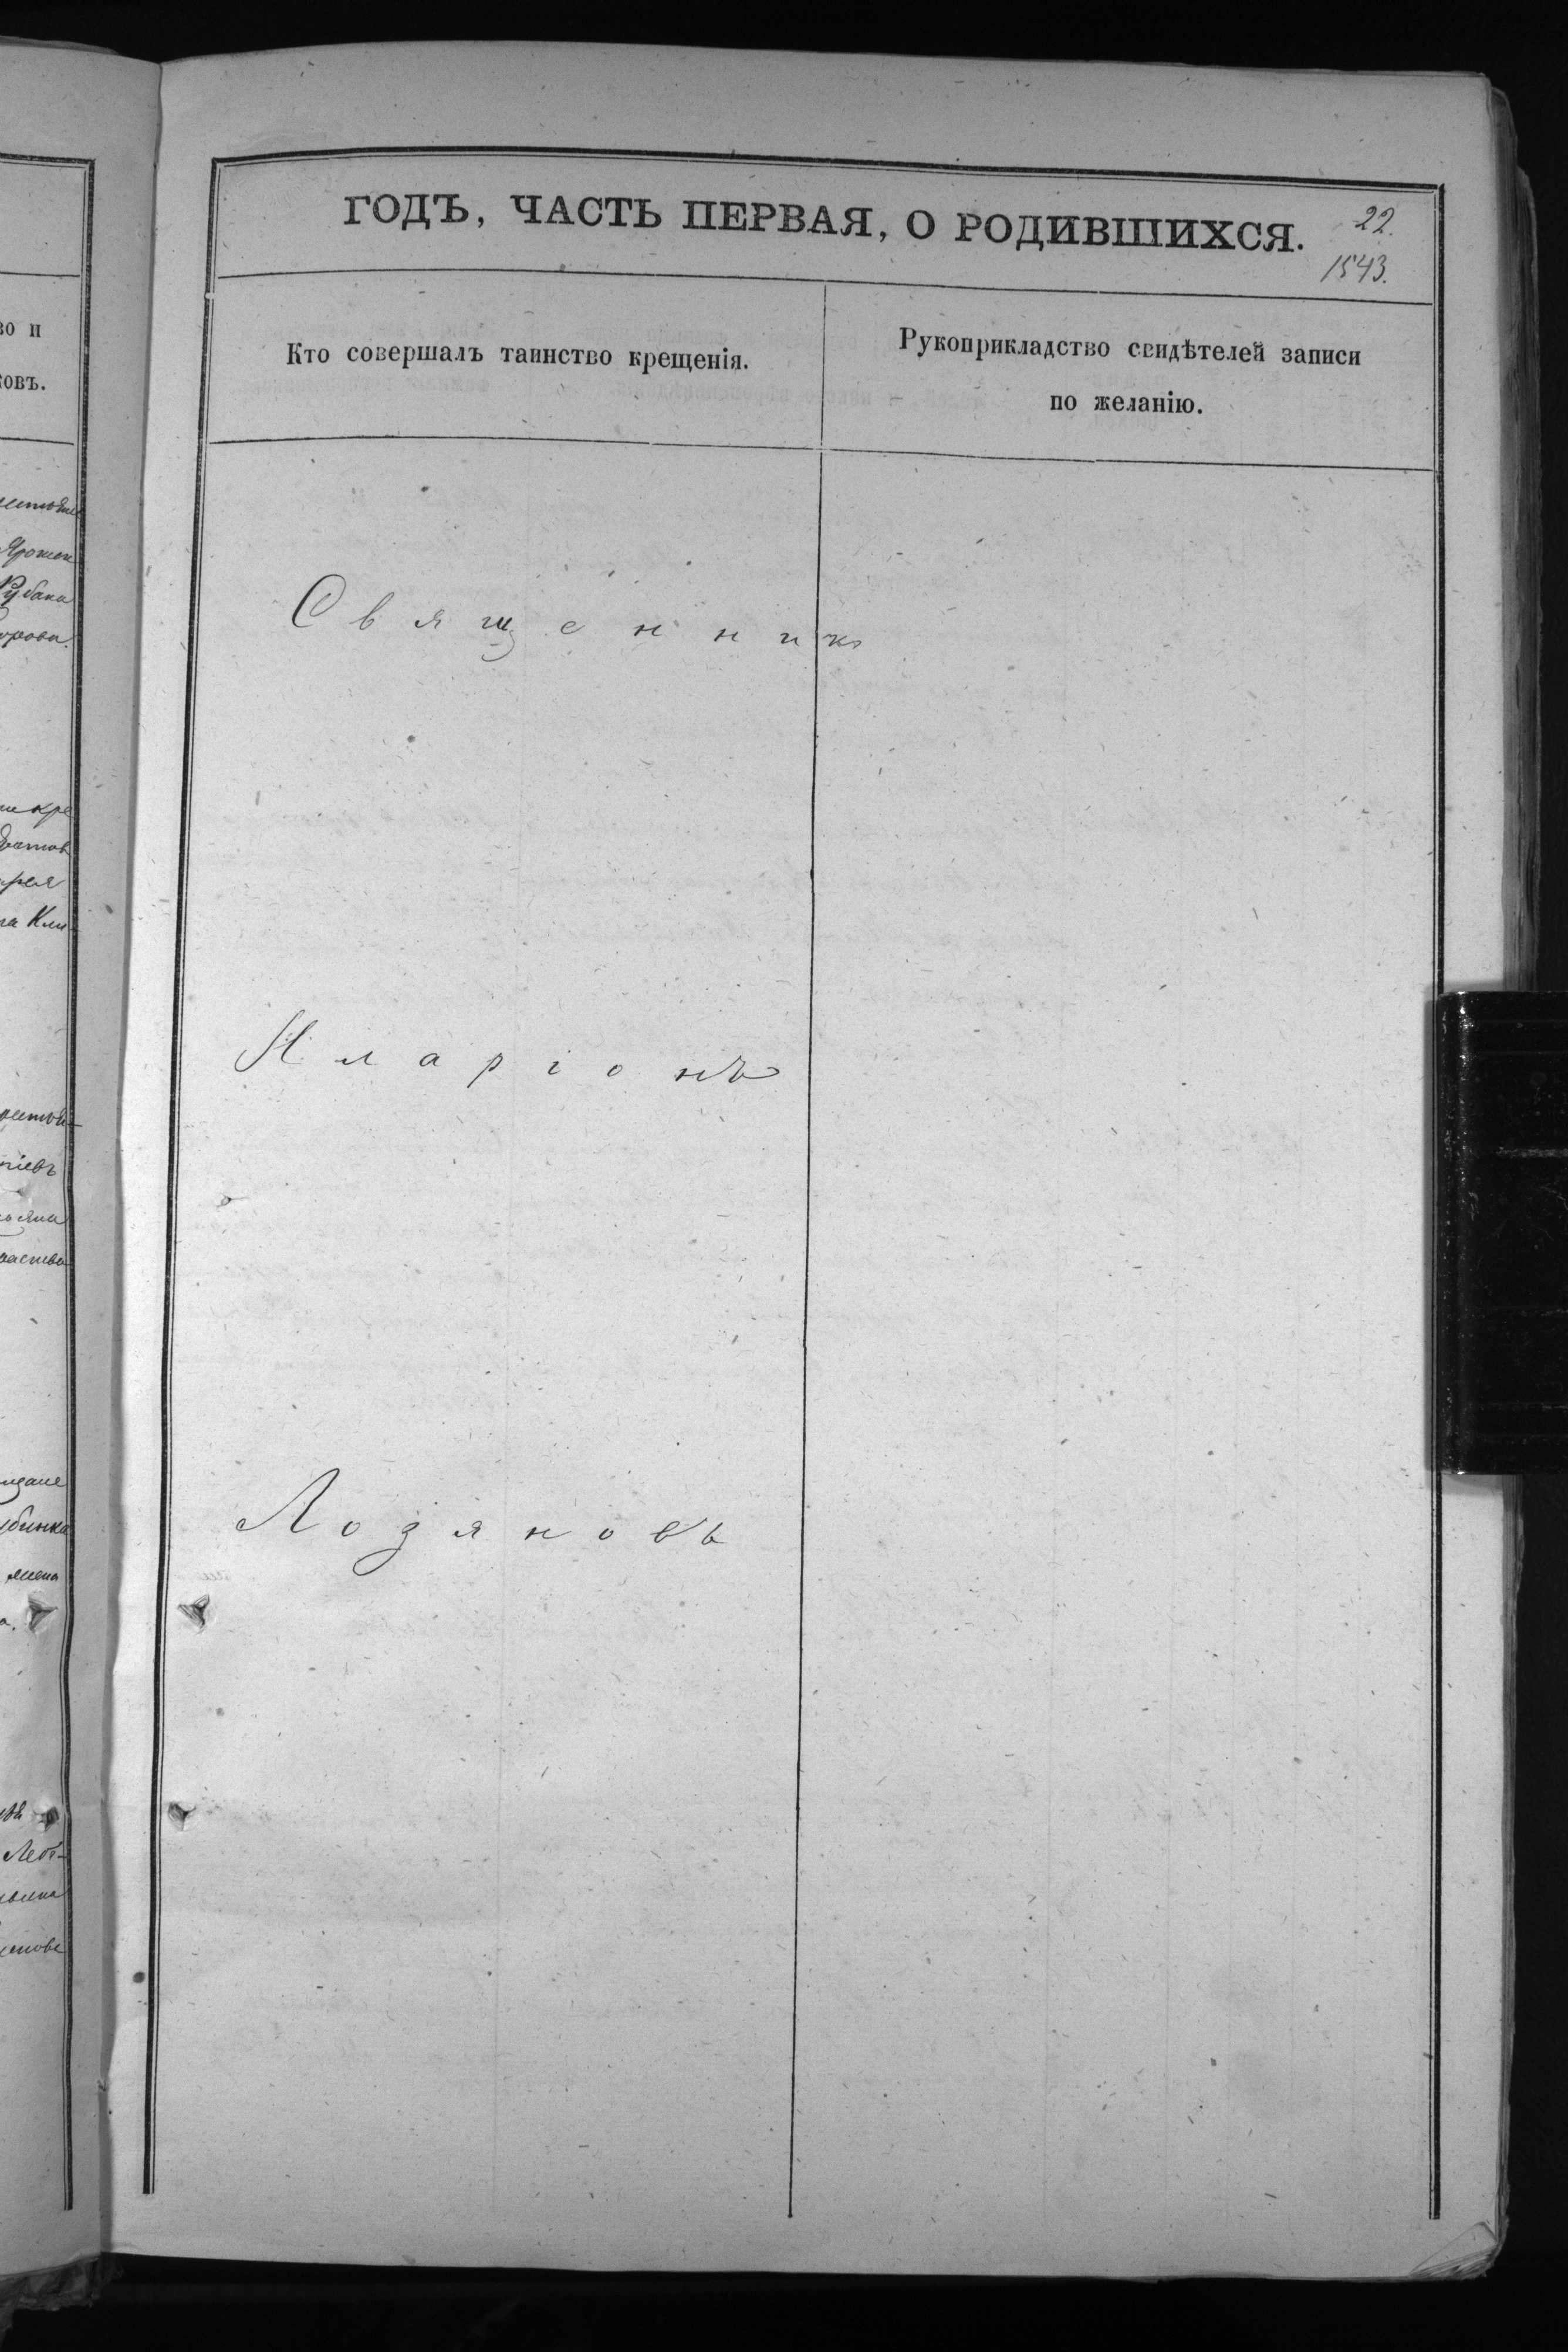 ГОДЪ, ЧАСТЬ ПЕРВАЯ, О РОДИВШИХСЯ.
22.
1543.
Кто совершалъ таинство крещенія.
Рукоприкладство свидѣтелей записи
по желанію.
Священникъ
Иларіонъ
Лозяновъ